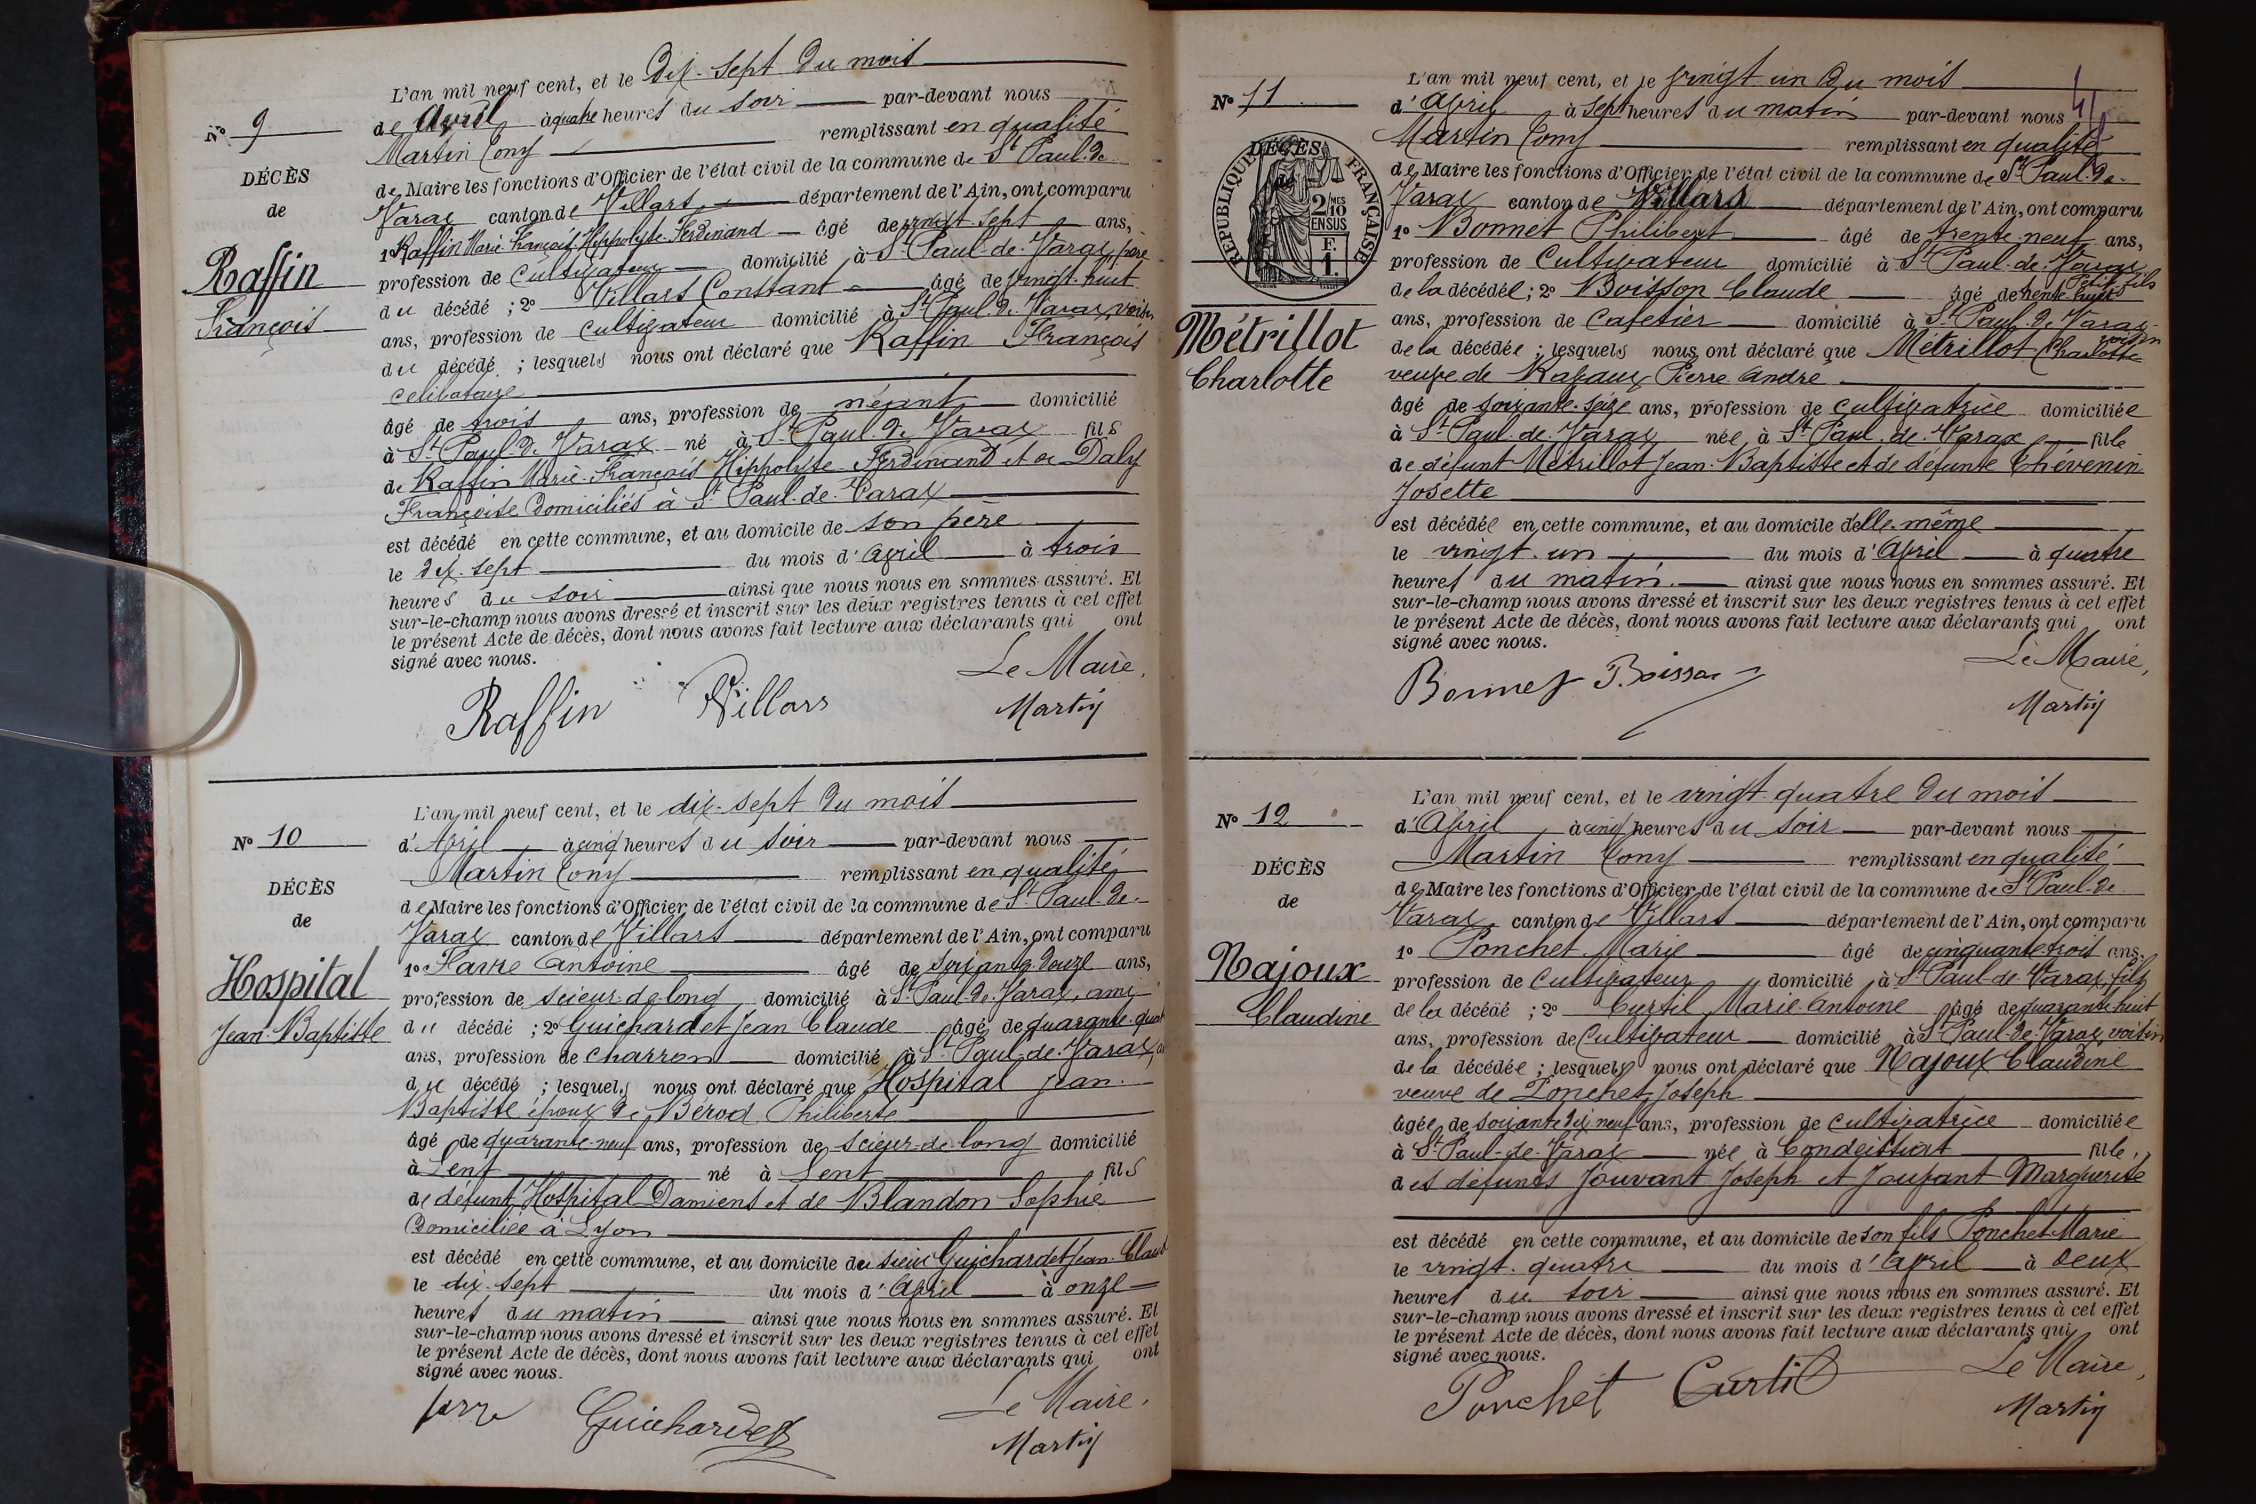 L'an mil neuf cent, et le Dix-sept du mois
N° 9
de Avril à quatre heures du soir par-devant nous
Martin Cony remplissant en qualité
DÉCÈS
de Maire les fonctions d'Officier de l'état civil de la commune de St Paul-de-
de
Varax canton de Villars département de l'Ain, ont comparu
1° Raffin Marie François Hippolyte Ferdinand âgé de vingt sept ans,
Raffin
profession de cultivateur domicilié à St Paul-de-Varax, père
du décédé ; 2° Villars Constant âgé de vingt-huit
François
ans, profession de cultivateur domicilié à St Paul-de-Varax, voisin
du décédé ; lesquels nous ont déclaré que Raffin François
célibataire
âgé de trois ans, profession de néant domicilié
à St Paul-de-Varax né à St Paul-de-Varax fils
de Raffin Marie-François Hippolyte Ferdinand et de Daly
Françoise Domiciliés à St Paul-de-Varax
est décédé en cette commune, et au domicile de son père
le dix-sept du mois d'Avril à trois
heures du soir ainsi que nous nous en sommes assuré. Et
sur-le-champ nous avons dressé et inscrit sur les deux registres tenus à cet effet
le présent Acte de décès, dont nous avons fait lecture aux déclarants qui ont
signé avec nous.
Le Maire,
Raffin Villars Martin
L'an mil neuf cent, et le dix-sept du mois
N° 10
d'Avril à cinq heures du soir par-devant nous
Martin Cony remplissant en qualité
DÉCÈS
de Maire les fonctions d'Officier de l'état civil de la commune de St Paul-de-
de
Varax canton de Villars département de l'Ain, ont comparu
1° Favre Antoine âgé de soixante-douze ans,
Hospital
profession de scieur-de-long domicilié à St Paul-de-Varax, ami
Jean-Baptiste
du décédé ; 2° Guichardet Jean Claude âgé de quarante-quat
ans, profession de charron domicilié à St Paul-de-Varax,
du décédé ; lesquels nous ont déclaré que Hospital Jean-
Baptiste époux de Bérod Philiberte
âgé de quarante-neuf ans, profession de scieur-de-long domicilié
à Lent né à Lent fils
de défunt Hospital Damiens et de Blandon Sophie
Domiciliée à Lyon
est décédé en cette commune, et au domicile du sieur Guichardet Jean-Claud
le dix-sept du mois d'Avril à onze
heures du matin ainsi que nous nous en sommes assuré. Et
sur-le-champ nous avons dressé et inscrit sur les deux registres tenus à cet effet
le présent Acte de décès, dont nous avons fait lecture aux déclarants qui ont
signé avec nous.
Le Maire,
Guichardet Martin
L'an mil neuf cent, et le vingt un du mois
N° 11
d'Avril à sept heures du matin par-devant nous
Martin Cony remplissant en qualité
RÉPUBLIQUE FRANÇAISE
DÉCÈS
de
2/10 MES
EN SUS
F.
1.
de Maire les fonctions d'Officier de l'état civil de la commune de St Paul-de-
Varax canton de Villars département de l'Ain, ont comparu
1° Bonnet Philibert âgé de trente-neuf ans,
profession de Cultivateur domicilié à St Paul-de-Varax
petit-fils
de la décédée ; 2° Boisson Claude âgé de trente-huit
Métrillot
ans, profession de Cafetier domicilié à St Paul-de-Varax
voisin
de la décédée ; lesquels nous ont déclaré que Métrillot Charlotte
Charlotte
veuve de Ravaux Pierre André
âgé de soixante-seize ans, profession de cultivatrice domiciliée
à St Paul-de-Varax née à St Paul-de-Varax fille
de défunt Métrillot Jean-Baptiste et de défunte Chévenin
Josette
est décédée en cette commune, et au domicile d'elle-même
le vingt-un du mois d'Avril à quatre
heures du matin ainsi que nous nous en sommes assuré. Et
sur-le-champ nous avons dressé et inscrit sur les deux registres tenus à cet effet
le présent Acte de décès, dont nous avons fait lecture aux déclarants qui ont
signé avec nous.
Le Maire,
Bonnet Boisson
Martin
L'an mil neuf cent, et le vingt-quatre du mois
N° 12
d'Avril à cinq heures du soir par-devant nous
Martin Cony remplissant en qualité
DÉCÈS
de Maire les fonctions d'Officier de l'état civil de la commune de St Paul-de-
de
Varax canton de Villars département de l'Ain, ont comparu
1° Ponchet Marie âgé de cinquante-trois ans,
Najoux
profession de Cultivateur domicilié à St Paul-de-Varax, fils
Claudine
de la décédé ; 2° Curtil Marie-Antoine âgé de quarante-huit
ans, profession de Cultivateur domicilié à St Paul-de-Varax, voisin
de la décédée ; lesquels nous ont déclaré que Najoux Claudine
veuve de Ponchet Joseph
âgée de soixante-dix-neuf ans, profession de cultivatrice domiciliée
à St Paul-de-Varax née à Condeissiat fille
des défunts Jouvant Joseph et Jouvant Marguerite
est décédé en cette commune, et au domicile de son fils Ponchet Marie
le vingt-quatre du mois d'Avril à deux
heures du soir ainsi que nous nous en sommes assuré. Et
sur-le-champ nous avons dressé et inscrit sur les deux registres tenus à cet effet
le présent Acte de décès, dont nous avons fait lecture aux déclarants qui ont
signé avec nous.
Le Maire,
Ponchet Curtil
Martin